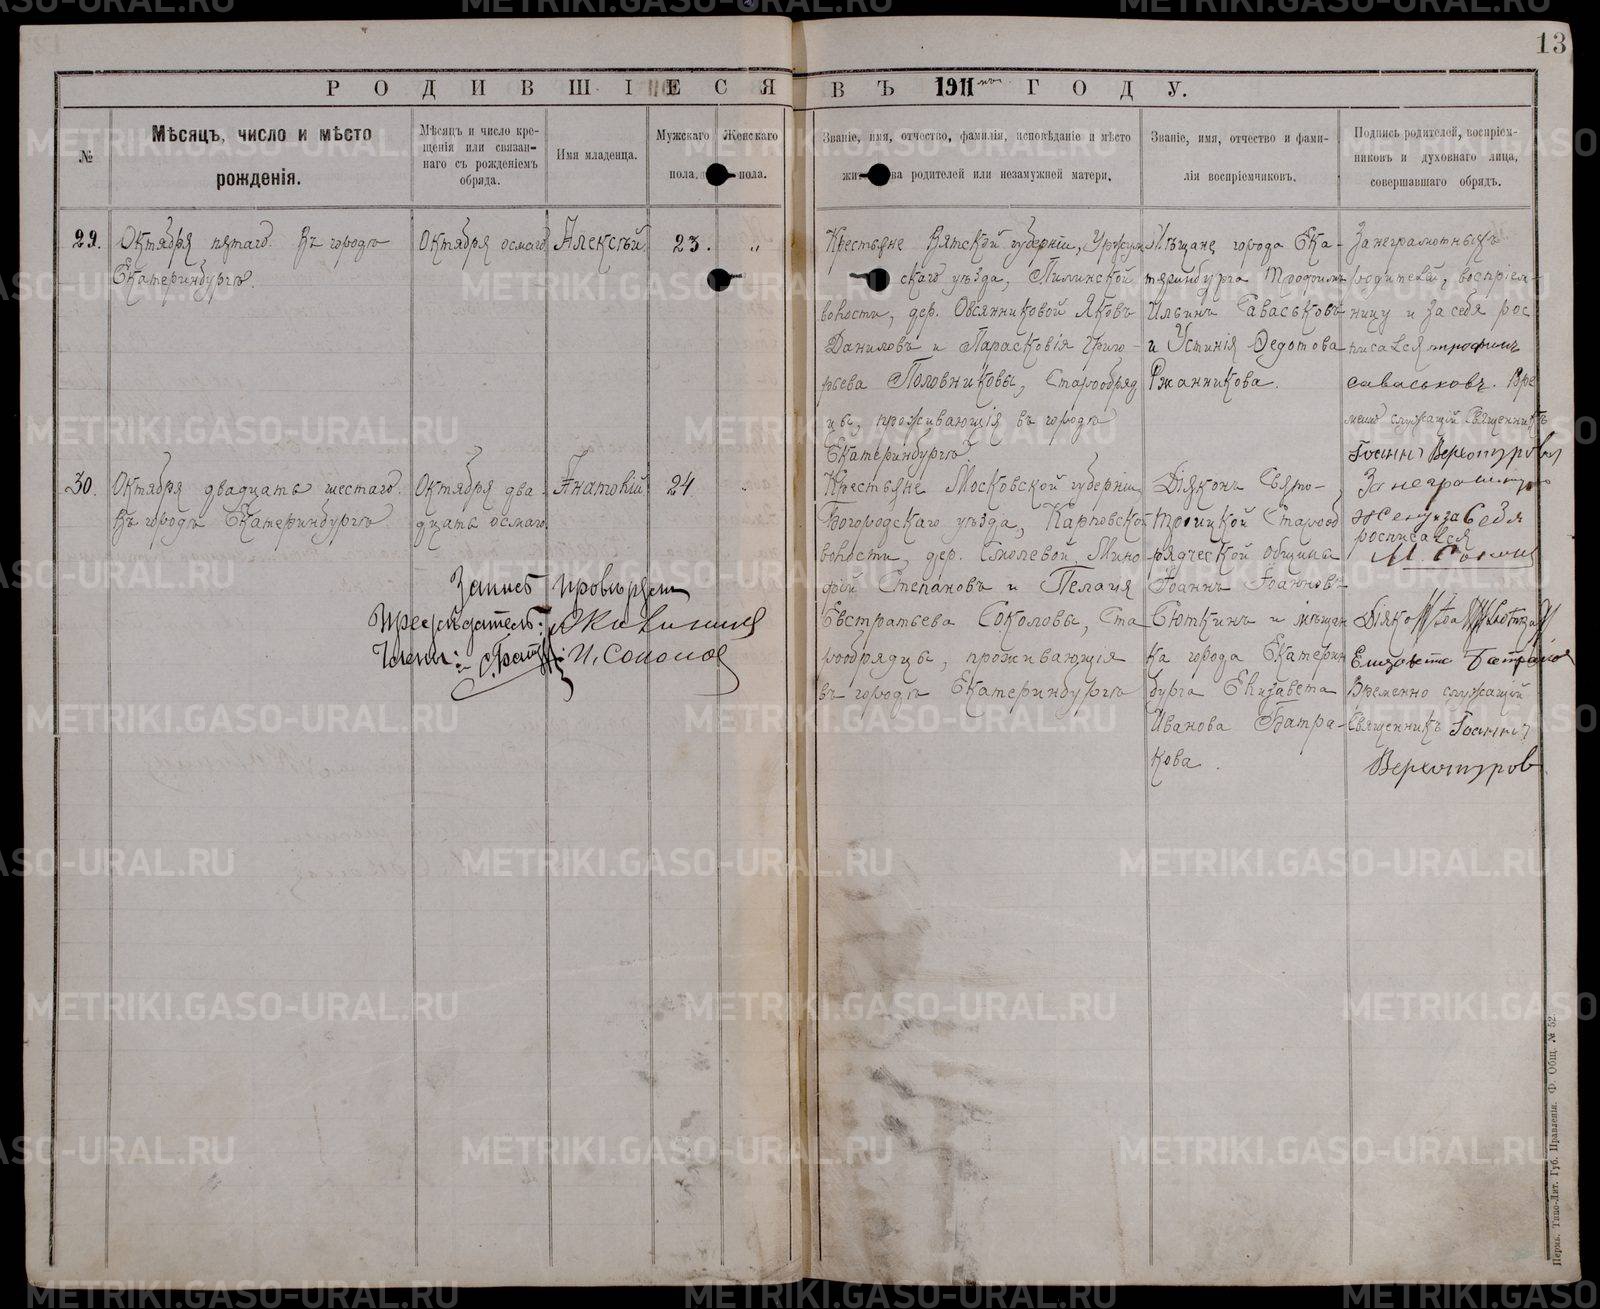 13
РОДИВШІЕСЯ ВЪ 1911 ГОДУ.
№
Мѣсяцъ, число и мѣсто рожденія.
Мѣсяцъ и число кре-
щенія или связан-
наго съ рожденіемъ
обряда.
Имя младенца.
Мужскаго пола.
Женскаго пола.
Званіе, имя, отчество, фамилія, исповѣданіе и мѣсто
родителей или незамужней матери.
Званіе, имя, отчество и фами-
лія воспріемчиковъ.
Подпись родителей, воспріем-
никовъ и духовнаго лица,
совершавшаго обрядъ.
29.
Октября пятаго. Въ городѣ
Екатеринбургѣ.
Октября осмаго
Алексѣй
23.
„
Крестьяне Вятской губерніи, Уржум
скаго уѣзда, Пилинской
волости, дер. Овсянниковой Яковъ
Даниловъ и Парасковія Григо-
рьева Половниковы, Старообряд
цы, проживающія въ городѣ
Екатеринбургѣ.
Мѣщане города Ека-
теринбурга Трофимъ
Ильинъ Саваськовъ
и Устинія Федотова
Ржанникова.
За неграмотныхъ
родителей, воспріем-
ницу и за себя рос
писался трофимъ
саваськовъ. Вре
менно служащій Священникъ
Іоаннъ Верхотуровъ
30.
Октября двадцать шестаго.
Въ городѣ Екатеринбургѣ
Октября два-
дцать осмаго
Анатолій
24
„
Крестьяне Московской губерніи
Богородскаго уѣзда, Карповской
волости, дер. Смолевой, Мино
фей Степановъ и Пелагія
Евстратьева Соколовы, Ста
рообрядцы, проживающія
въ городѣ Екатеринбургѣ
Діяконъ Свято-
Троицкой Старооб
рядческой общины
Іоаннъ Іоанновъ
Сюткинъ и мѣщан
ка города Екатерин
бурга Елизавета
Иванова Батра-
кова.
За неграмотную
жену и за себя
росписался
М. Соколов
Елизавета Батракова
Временно служащій
Священникъ Іоаннъ
Верхотуров
Запись провѣряли
Предсѣдатель:
Члены: И. Соколов
Пермь. Типо-Лит. Губ. Правленія. Ф. Общ. № 52.
METRIKI.GASO-URAL.RU